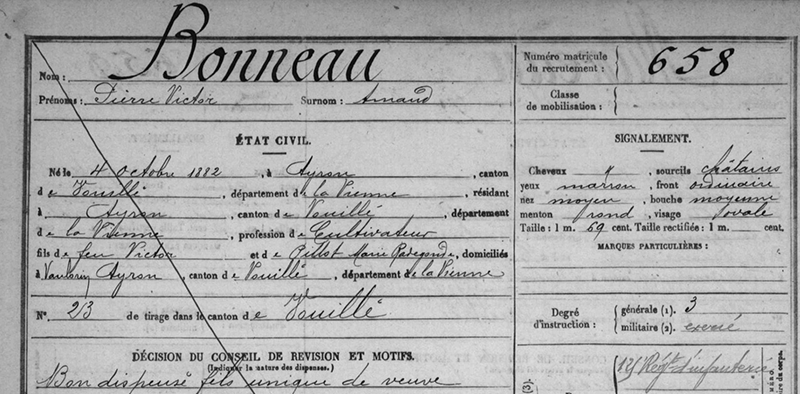 Nom : Bonneau
Prénoms : Pierre Victor Surnom : Amand
Numéro matricule du recrutement : 658
Classe de mobilisation :
ÉTAT CIVIL.
Né le 4 octobre 1882, à Ayron, canton
de Vouillé, département de la Vienne, résidant
à Ayron, canton de Vouillé, département
de la Vienne, profession de Cultivateur
fils de feu Victor et de Marie Radegonde, domiciliés
à Ayron, canton de Vouillé, département de la Vienne
N° 23 de tirage dans le canton de Vouillé
DÉCISION DU CONSEIL DE REVISION ET MOTIFS.
(Indiquer la nature des dispenses.)
Bon dispensé fils unique de veuve
SIGNALEMENT.
Cheveux " , sourcils châtains
yeux marron , front ordinaire
nez moyen , bouche moyenne
menton rond , visage ovale
Taille : 1 m. 59 cent. Taille rectifiée : 1 m. cent.
MARQUES PARTICULIÈRES :
Degré d'instruction : générale (1). 3
militaire (2). exercé
125 Régt d'infanterie
(3).
MÉRO
du corps.